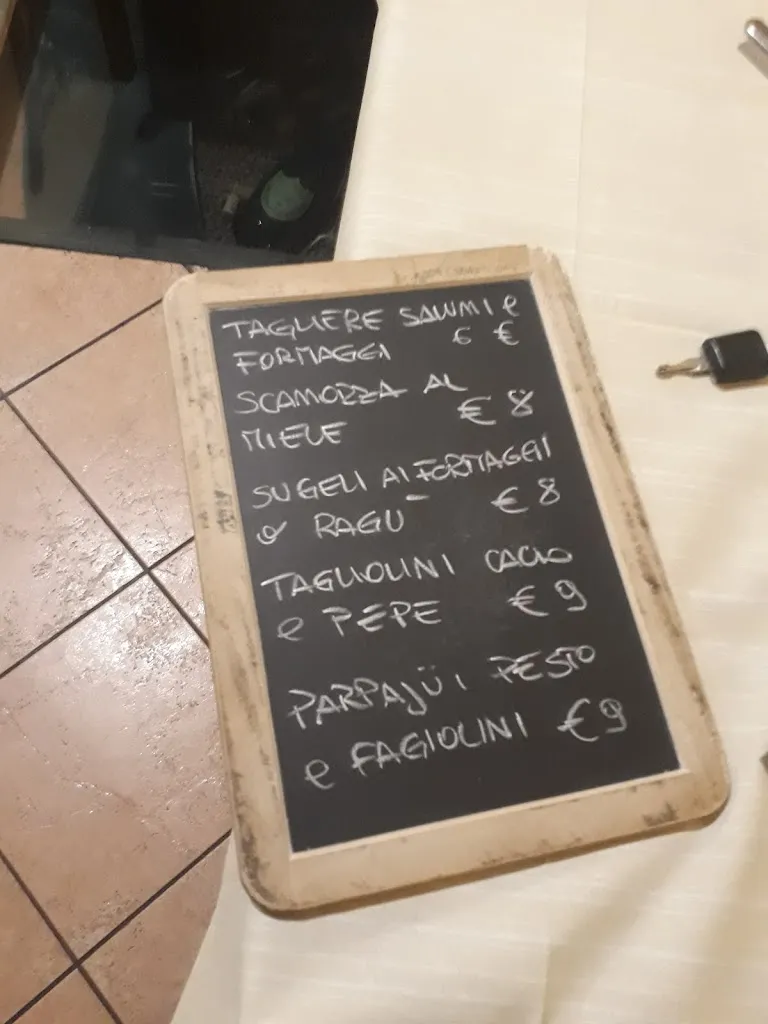 TAGLIERE SALUMI e
FORMAGGI 6 €
SCAMORZA AL
MIELE € 8
SUGELI AI FORMAGGI
o RAGÙ € 8
TAGLIOLINI CACIO
e PEPE € 9
PARPAJÜI PESTO
e FAGIOLINI € 9